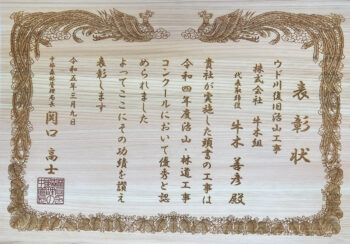 表彰状
ウド川復旧治山工事
株式会社 牛木組
代表取締役 牛木 善彦 殿
貴社が実施した頭書の工事は
令和四年度治山・林道工事
コンクールにおいて優秀と認
められました
よってここにその功績を讃え
表彰します
令和五年三月九日
中部森林管理局長
関口 高士